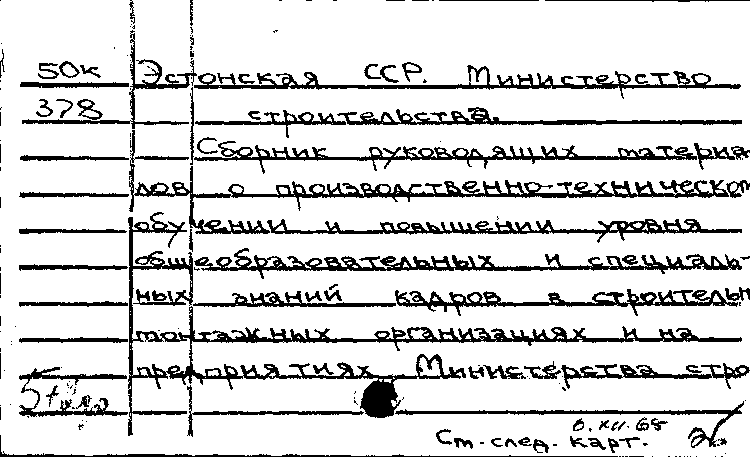 50к Эстонская ССР. Министерство
378 строительства.
Сборник руководящих материа
лов о производственно-техническом
обучении и повышении уровня
общеобразовательных и специаль-
ных знаний кадров в строительн
монтажных организациях и на
предприятиях Министерства стро
См. след. карт.